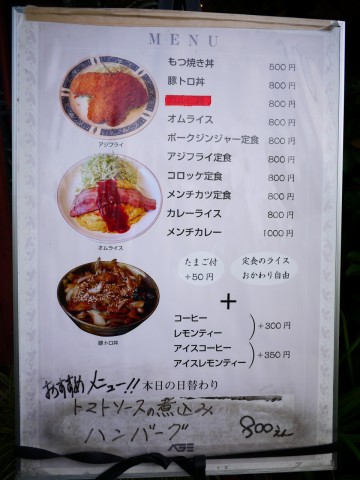 MENU
もつ焼き丼 500円
豚トロ丼 800円
800円
オムライス 800円
ポークジンジャー定食 800円
アジフライ定食 800円
コロッケ定食 800円
メンチカツ定食 800円
カレーライス 800円
メンチカレー 1000円
アジフライ
オムライス
豚トロ丼
たまご付
+50円
定食のライス
おかわり自由
+
コーヒー
レモンティー
+300円
アイスコーヒー
アイスレモンティー
+350円
おすすめメニュー!! 本日の日替わり
トマトソースの煮込み
ハンバーグ 800えん